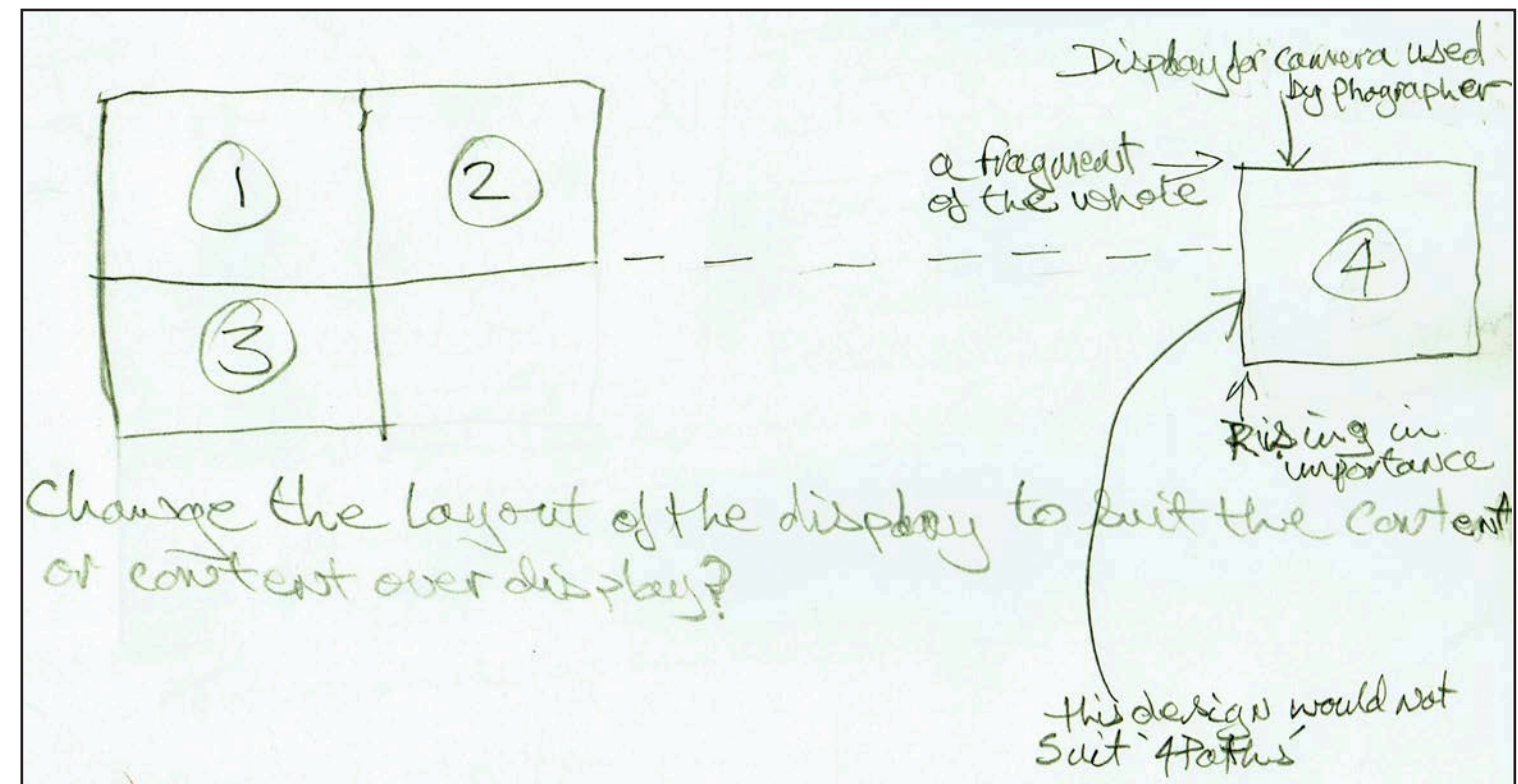 Display for camera used
by Phographer
a fragment
of the whole
1
2
3
4
Rising in
importance
Change the layout of the display to suit the content
or content over display?
this design would not
Suit '4Paths'